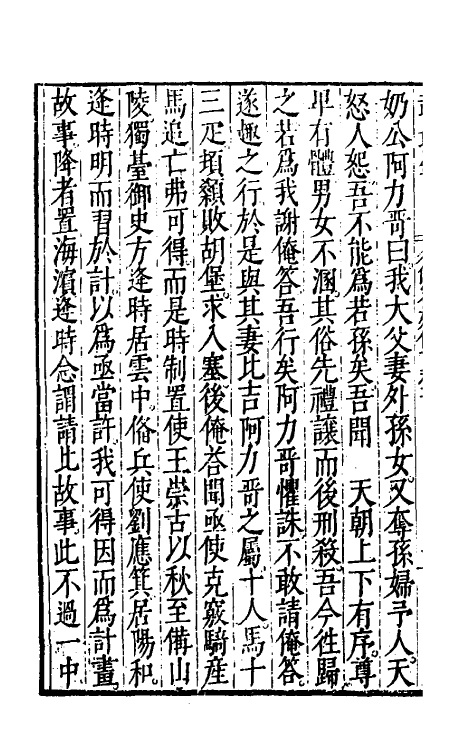 奶公阿力哥曰我大父妻外孫女又奪孫婦予人天
怒人怨吾不能為若孫矣吾聞　天朝上下有序尊
卑有體男女不溷其俗先禮讓而後刑殺吾今徃歸
之若為我謝俺答吾行矣阿力哥懼誅不敢請俺答
遂趣之行於是與其妻比吉阿力哥之屬十人馬十
三疋頃顙敗胡堡求入塞後俺答聞亟使克竅騎産
馬追亡弗可得而是時制置使王崇古以秋至備山
陵獨臺御史方逢時居雲中俻兵使劉應箕居陽和
逢時明而習於計以為亟當許我可得因而為計畫
故事降者置海濱逢時念謂請比故事此不過一中